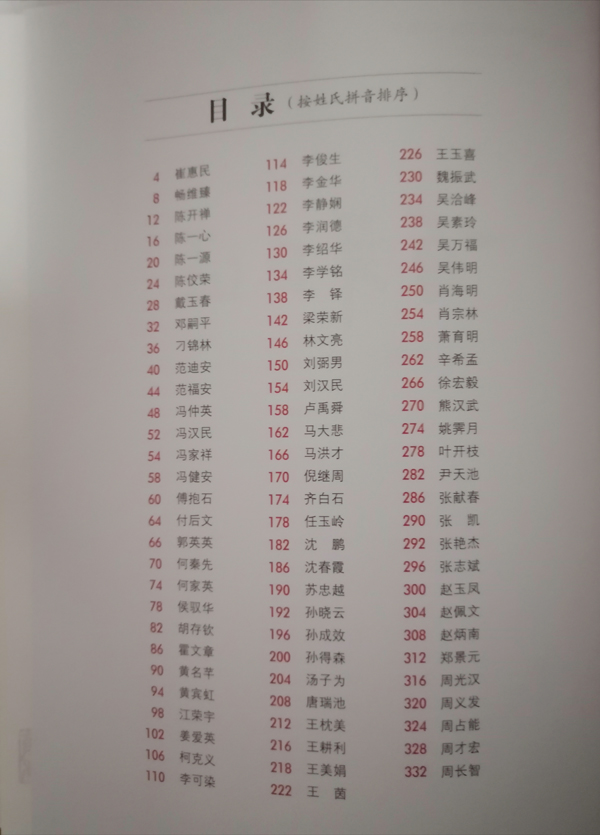 目 录（按姓氏拼音排序）
4 崔惠民
8 畅维臻
12 陈开禅
16 陈一心
20 陈一源
24 陈佼荣
28 戴玉春
32 邓嗣平
36 刁锦林
40 范迪安
44 范福安
48 冯仲英
52 冯汉民
54 冯家祥
58 冯健安
60 傅抱石
64 付后文
66 郭英英
70 何秦先
74 何家英
78 侯驭华
82 胡存钦
86 霍文章
90 黄名芊
94 黄宾虹
98 江荣宇
102 姜爱英
106 柯克义
110 李可染
114 李俊生
118 李金华
122 李静娴
126 李润德
130 李绍华
134 李学铭
138 李 铎
142 梁荣新
146 林文亮
150 刘弼男
154 刘汉民
158 卢禹舜
162 马大悲
166 马洪才
170 倪继周
174 齐白石
178 任玉岭
182 沈 鹏
186 沈春霞
190 苏忠越
192 孙晓云
196 孙成效
200 孙得森
204 汤子为
208 唐瑞池
212 王枕美
216 王耕利
218 王美娟
222 王 茵
226 王玉喜
230 魏振武
234 吴洽峰
238 吴素玲
242 吴万福
246 吴伟明
250 肖海明
254 肖宗林
258 萧育明
262 辛希孟
266 徐宏毅
270 熊汉武
274 姚霁月
278 叶开枝
282 尹天池
286 张献春
290 张 凯
292 张艳杰
296 张志斌
300 赵玉凤
304 赵佩文
308 赵炳南
312 郑景元
316 周光汉
320 周义发
324 周占能
328 周才宏
332 周长智